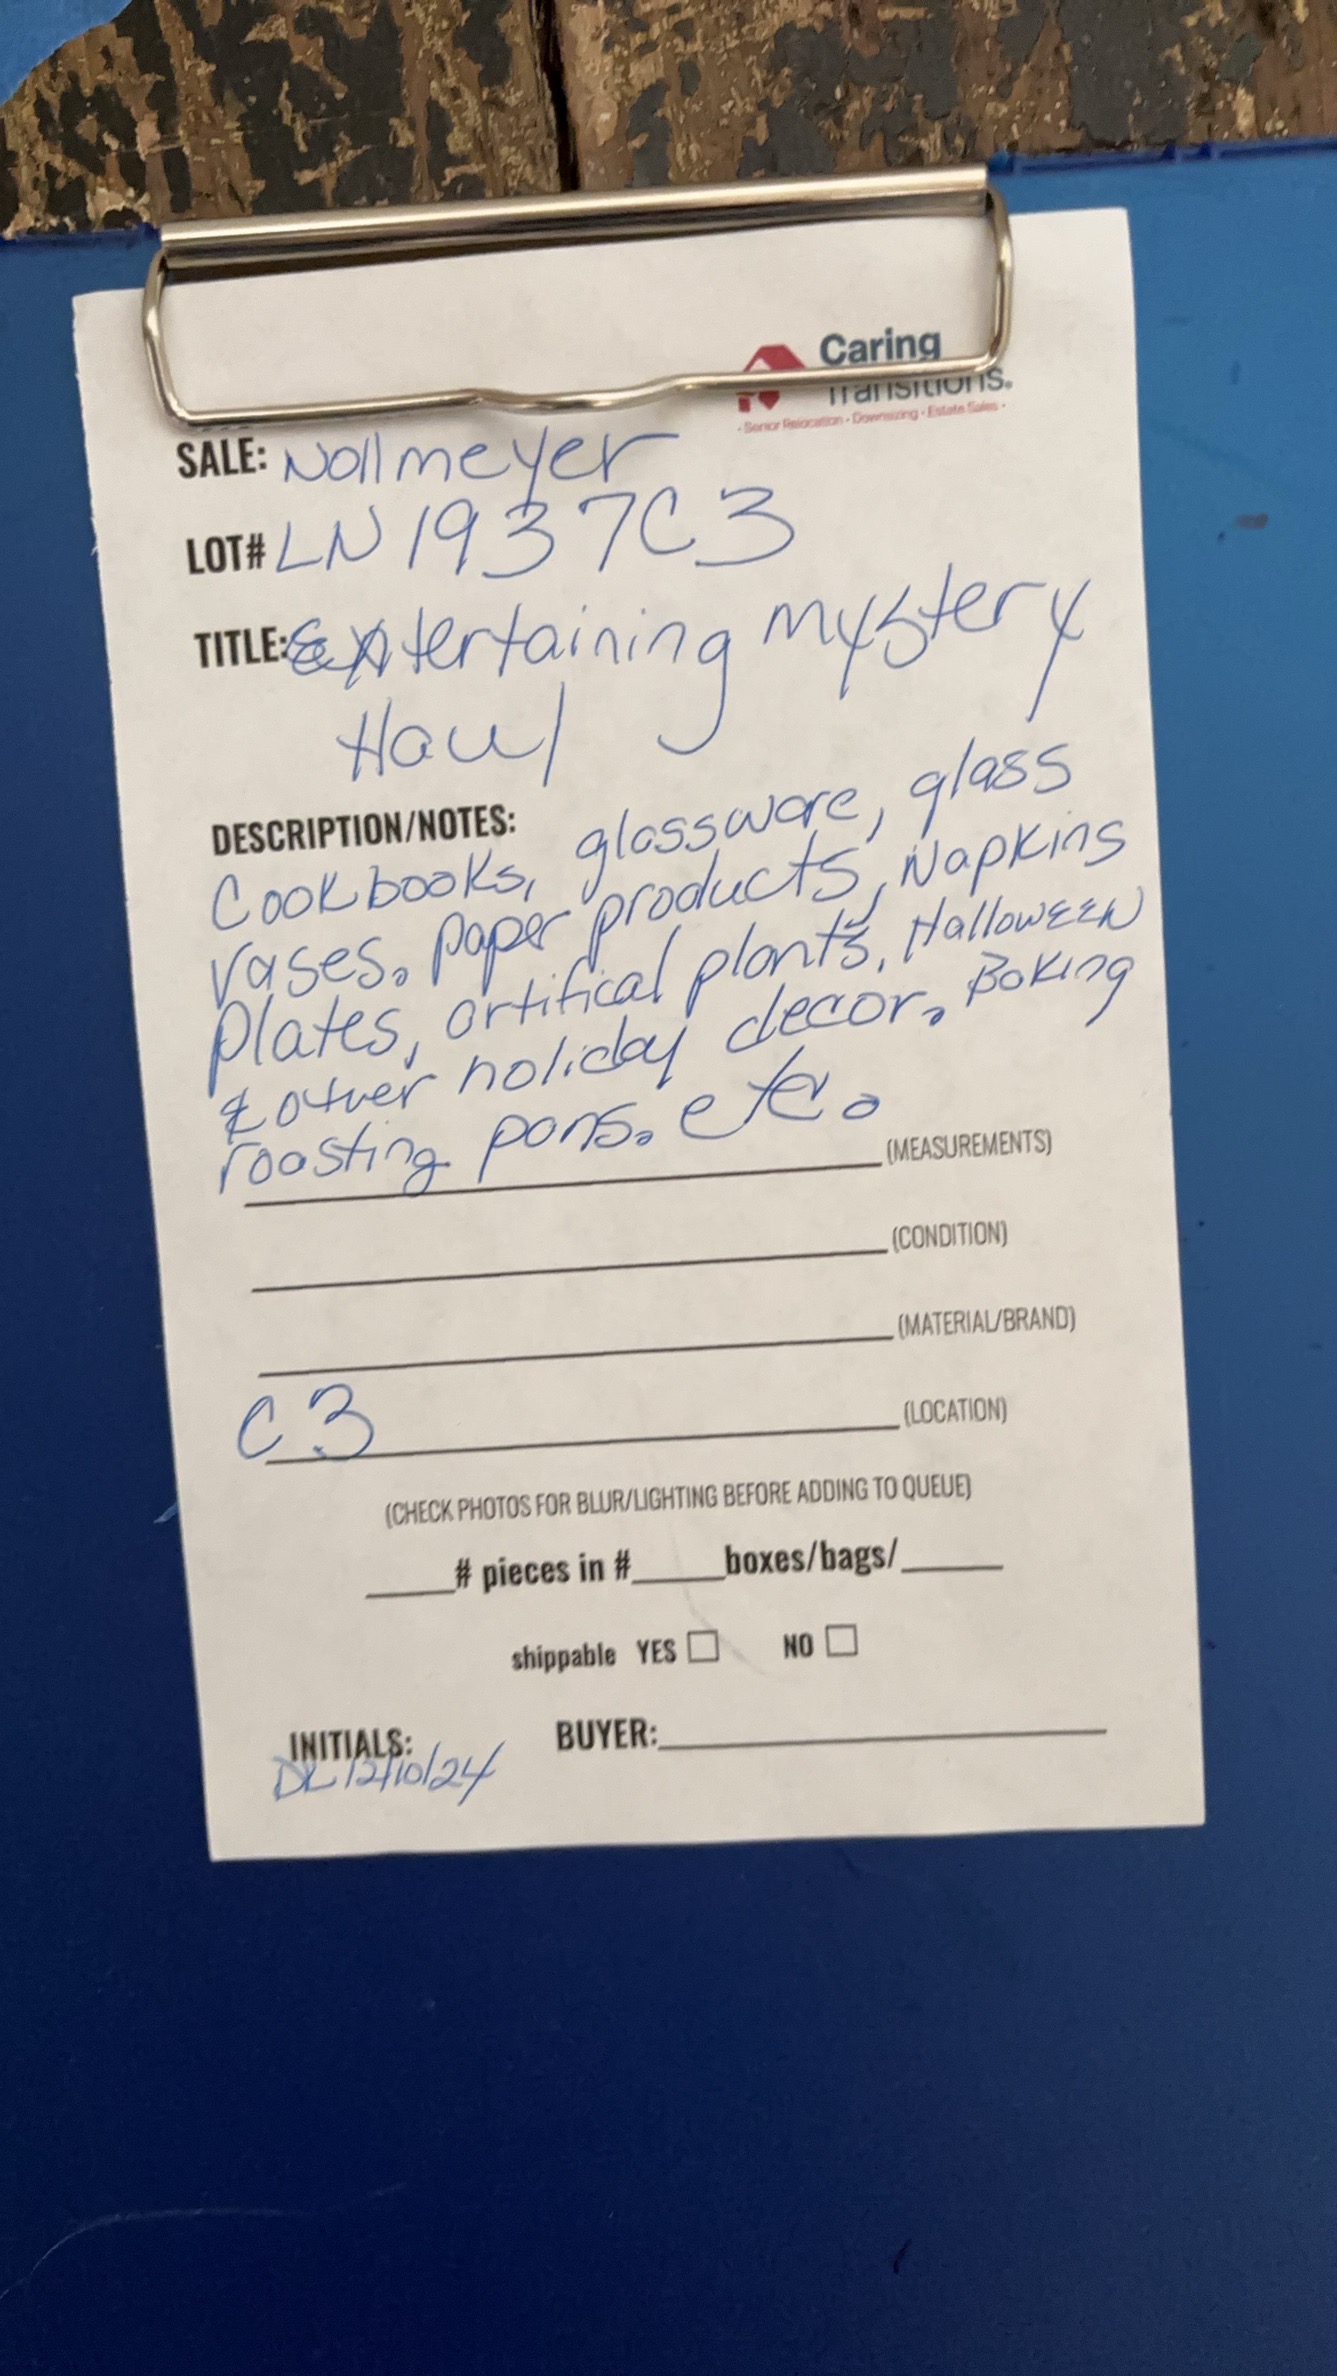 Caring
Transitions.
· Senior Relocation · Downsizing · Estate Sales ·
SALE: Nollmeyer
LOT# LN1937C3
TITLE: Entertaining mystery
Haul
DESCRIPTION/NOTES:
Cookbooks, glassware, glass
vases. paper products, Napkins
plates, artifical plants, Halloween
& other holiday decor. Baking
roasting pans. etc.
(MEASUREMENTS)
(CONDITION)
(MATERIAL/BRAND)
C3 (LOCATION)
(CHECK PHOTOS FOR BLUR/LIGHTING BEFORE ADDING TO QUEUE)
____# pieces in #____boxes/bags/____
shippable YES ☐ NO ☐
INITIALS: BUYER:
DL 12/10/24